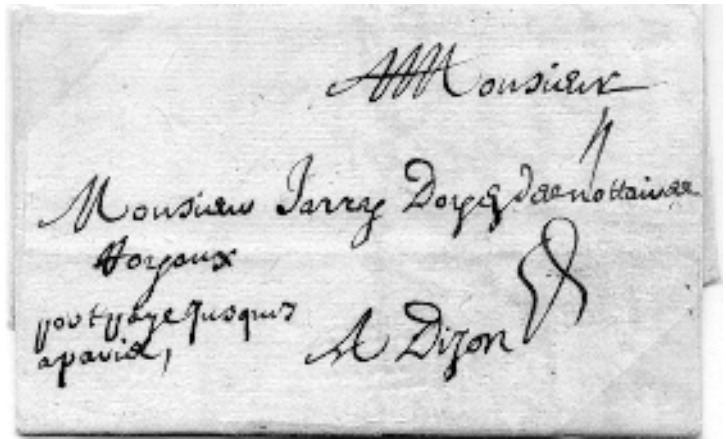 A Monsieur
Monsieur Jarry Doyen de nottaire
Royaux
port paye Jusques
a paris,
A Dijon